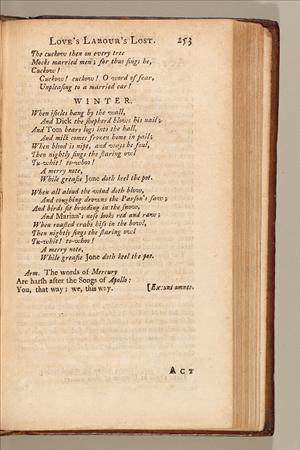 LOVE'S LABOUR'S LOST. 253
The cuckow then on every tree
Mocks married men; for thus sings he,
Cuckow!
Cuckow! cuckow! O word of fear,
Unpleasing to a married ear!
WINTER.
When isicles hang by the wall,
And Dick the shepherd blows his nail;
And Tom bears logs into the hall,
And milk comes frozen home in pail;
When blood is nipt, and ways be foul,
Then nightly sings the staring owl
Tu-whit! to-whoo!
A merry note,
While greasie Jone doth keel the pot.
When all aloud the wind doth blow,
And coughing drowns the Parson's saw;
And birds sit brooding in the snow,
And Marian's nose looks red and raw;
When roasted crabs hiss in the bowl,
Then nightly sings the staring owl
Tu-whit! to-whoo!
A merry note,
While greasie Jone doth keel the pot.
Arm. The words of Mercury
Are harsh after the Songs of Apollo:
You, that way; we, this way. [Exeunt omnes.
ACT